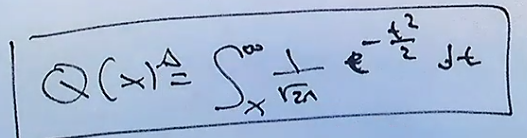 Q(x) ≜ ∫_x^∞ 1/√2π e^{-t²/2} dt